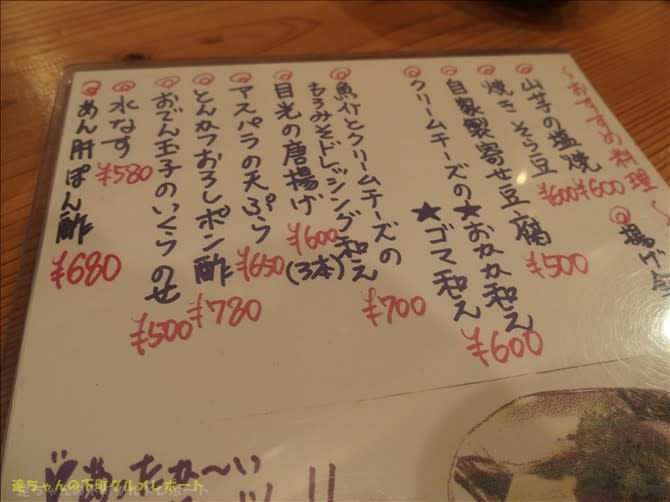 〜おすすめ料理〜
◎山芋の塩焼 ¥600
◎焼きそら豆 ¥600
◎自家製寄せ豆腐 ¥500
◎クリームチーズの★おかか和え
★ゴマ和え ¥600
◎魚介とクリームチーズの
もろみそドレッシング和え ¥700
◎目光の唐揚げ ¥600
(3本)
◎アスパラの天ぷら ¥650
◎とんかつおろしポン酢 ¥780
◎おでん玉子のいくらのせ ¥500
◎水なす ¥580
◎あん肝ぽん酢 ¥680
◎揚げ
達ちゃんの下町グルメレポート